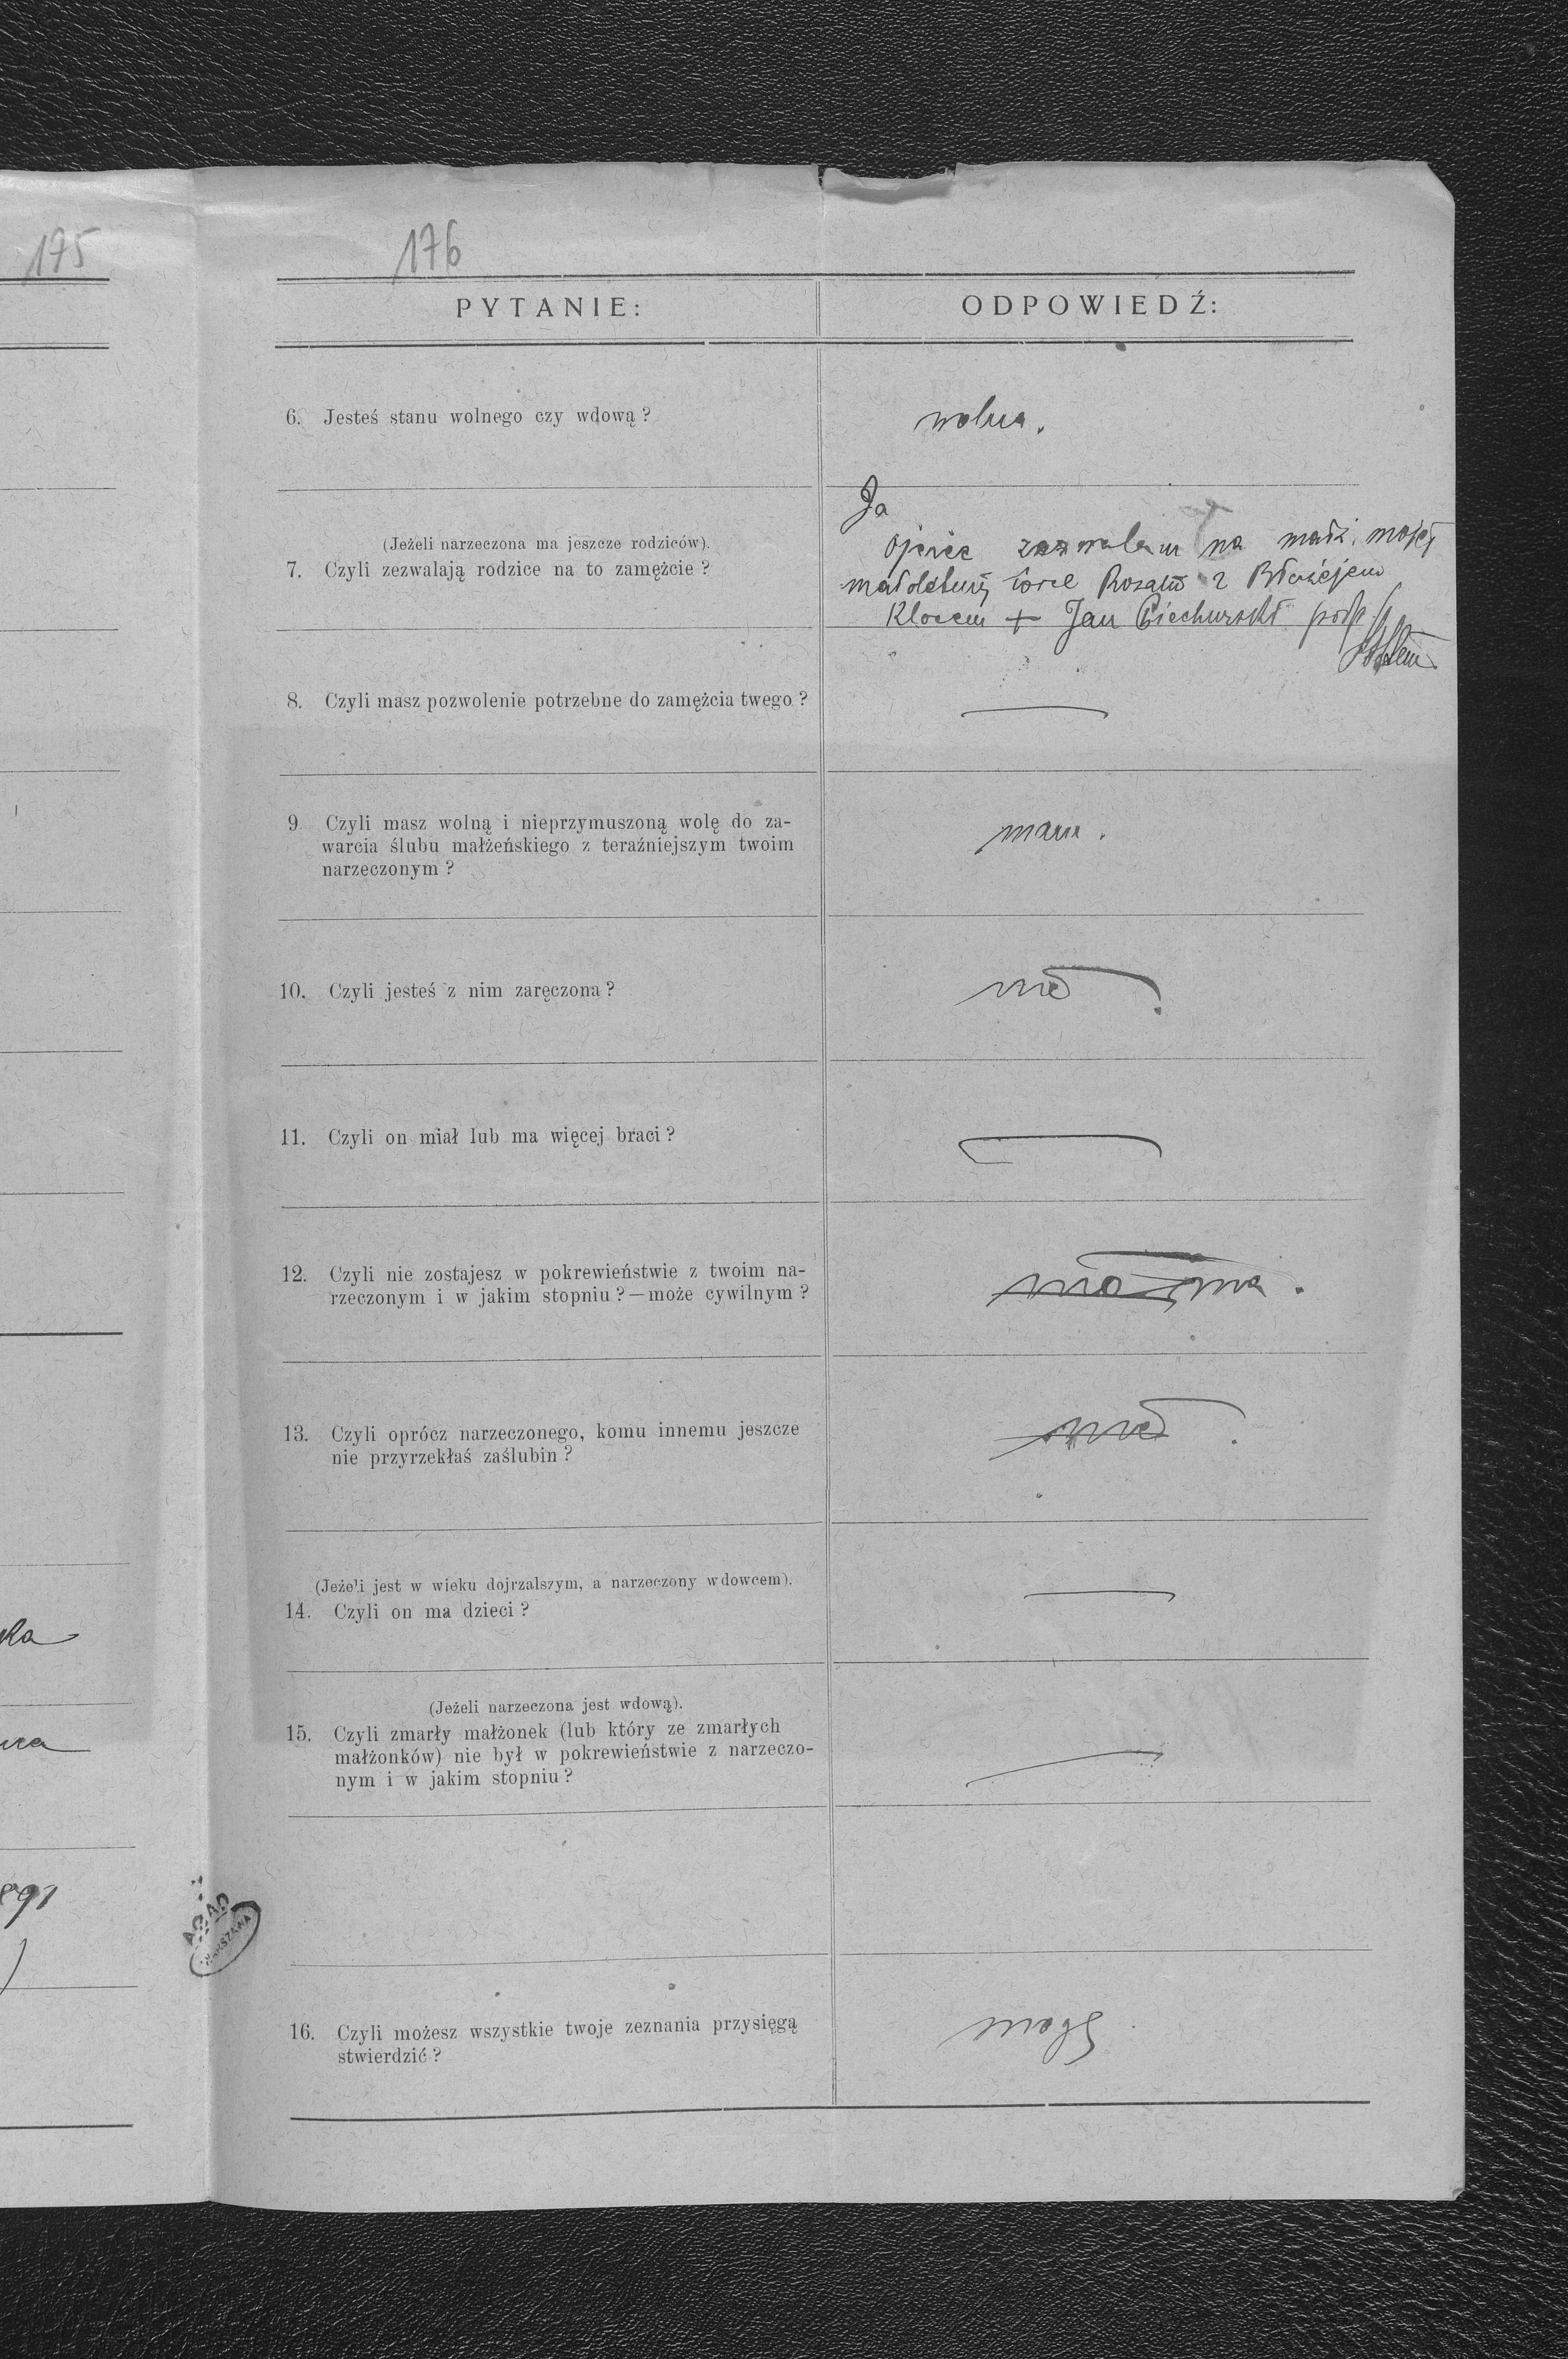 175
176
PYTANIE:
ODPOWIEDŹ:
6. Jesteś stanu wolnego czy wdową?
wolna.
(Jeżeli narzeczona ma jeszcze rodziców).
7. Czyli zezwalają rodzice na to zamężcie?
Ja
ojciec zezwalam na małż. mojej
małoletniej córce Rozalii z Błażejem
Klocem + Jan Ciechurski podp.
8. Czyli masz pozwolenie potrzebne do zamężcia twego?
—
9 Czyli masz wolną i nieprzymuszoną wolę do za-
warcia ślubu małżeńskiego z teraźniejszym twoim
narzeczonym?
mam.
10. Czyli jesteś z nim zaręczona?
nie
11. Czyli on miał lub ma więcej braci?
—
12. Czyli nie zostajesz w pokrewieństwie z twoim na-
rzeczonym i w jakim stopniu?—może cywilnym?
niema.
13. Czyli oprócz narzeczonego, komu innemu jeszcze
nie przyrzekłaś zaślubin?
nie.
(Jeżeli jest w wieku dojrzalszym, a narzeczony wdowcem).
14. Czyli on ma dzieci?
—
(Jeżeli narzeczona jest wdową).
15. Czyli zmarły małżonek (lub który ze zmarłych
małżonków) nie był w pokrewieństwie z narzeczo-
nym i w jakim stopniu?
—
16. Czyli możesz wszystkie twoje zeznania przysięgą
stwierdzić?
mogę
ka
891
AGAD
WARSZAWA